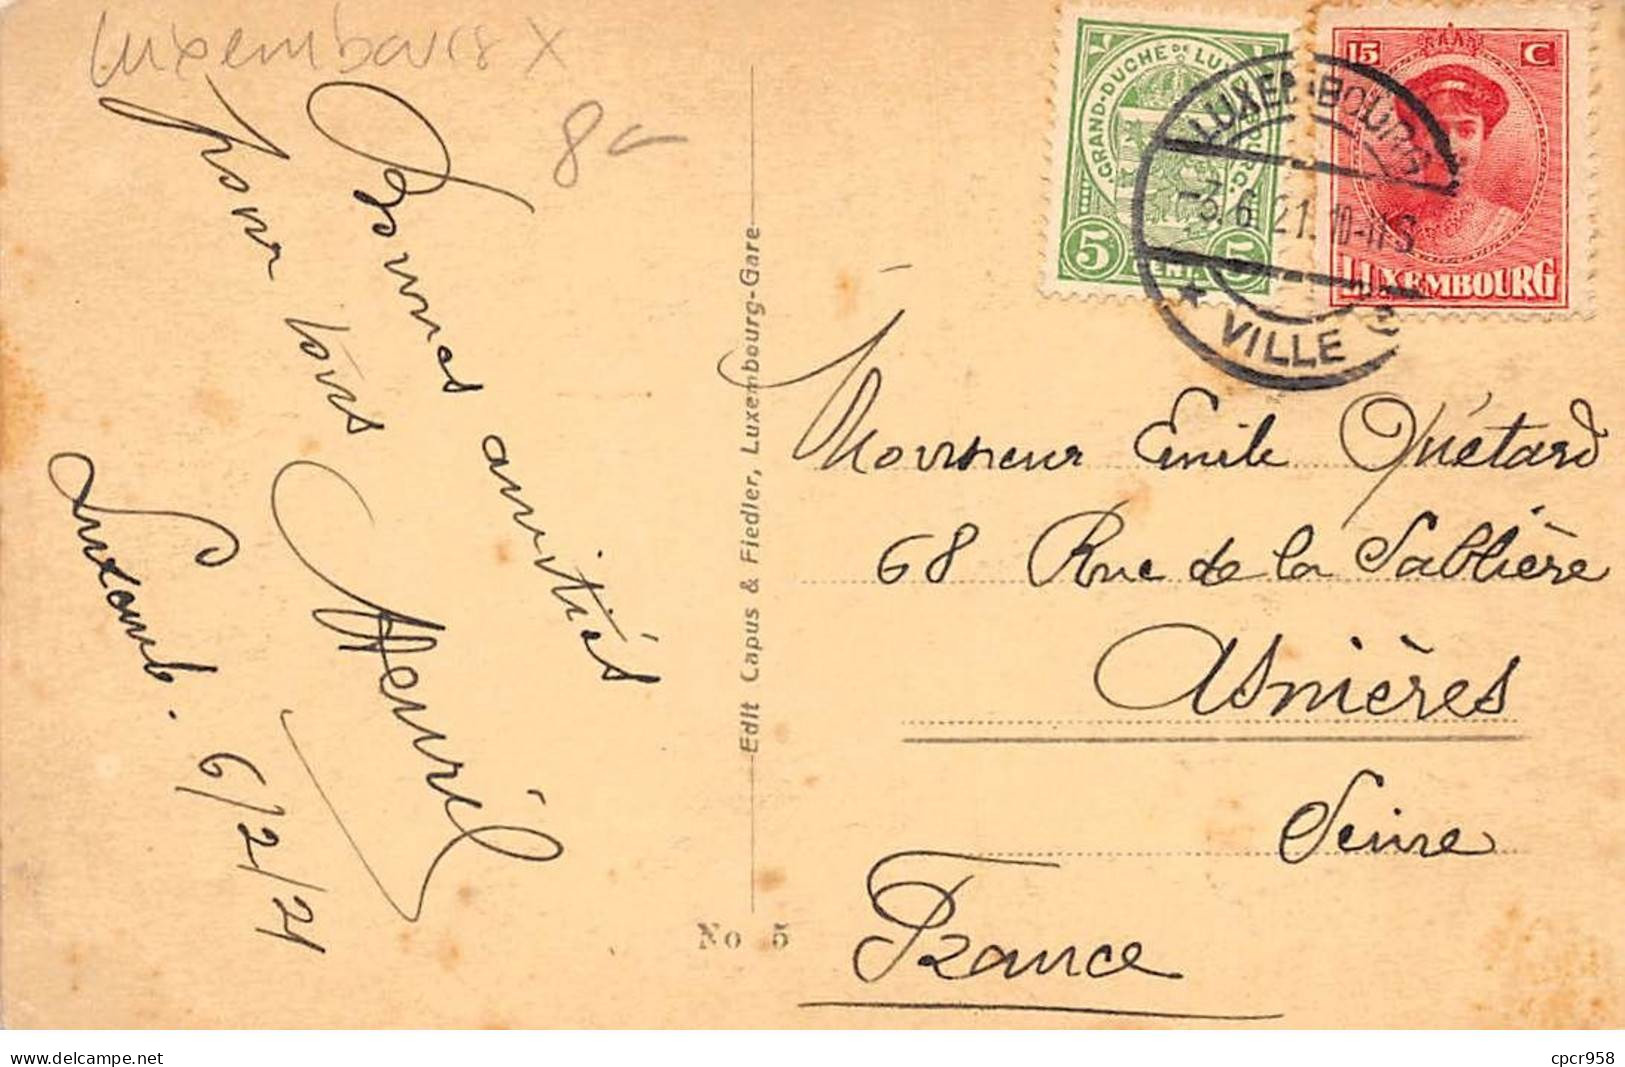 Luxembourg X
8-
Bonnes amitiés
pour tous
Luxemb. 6/2/21
Edit Capus & Fiedler, Luxembourg-Gare
No 5
GRAND-DUCHE DE LUXEMBOURG.
5 CENT. 5
15 C
LUXEMBOURG
LUXEMBOURG
6. 21. 10-11 S
VILLE
Monsieur Emile Quétard
68 Rue de la Sablière
Asnières
Seine
France
www.delcampe.net
cpcr958